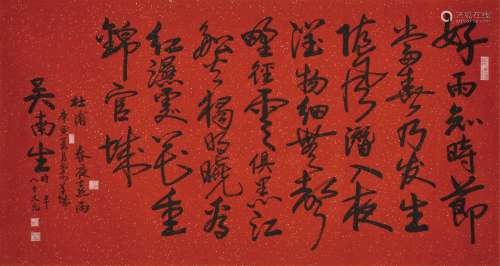 好雨知時節
當春乃發生
随風潛入夜
潤物細無聲
野徑雲俱黑江
船火獨明曉看
紅濕處花重
錦官城
杜甫 春夜喜雨
吳南生
時年
八十又九